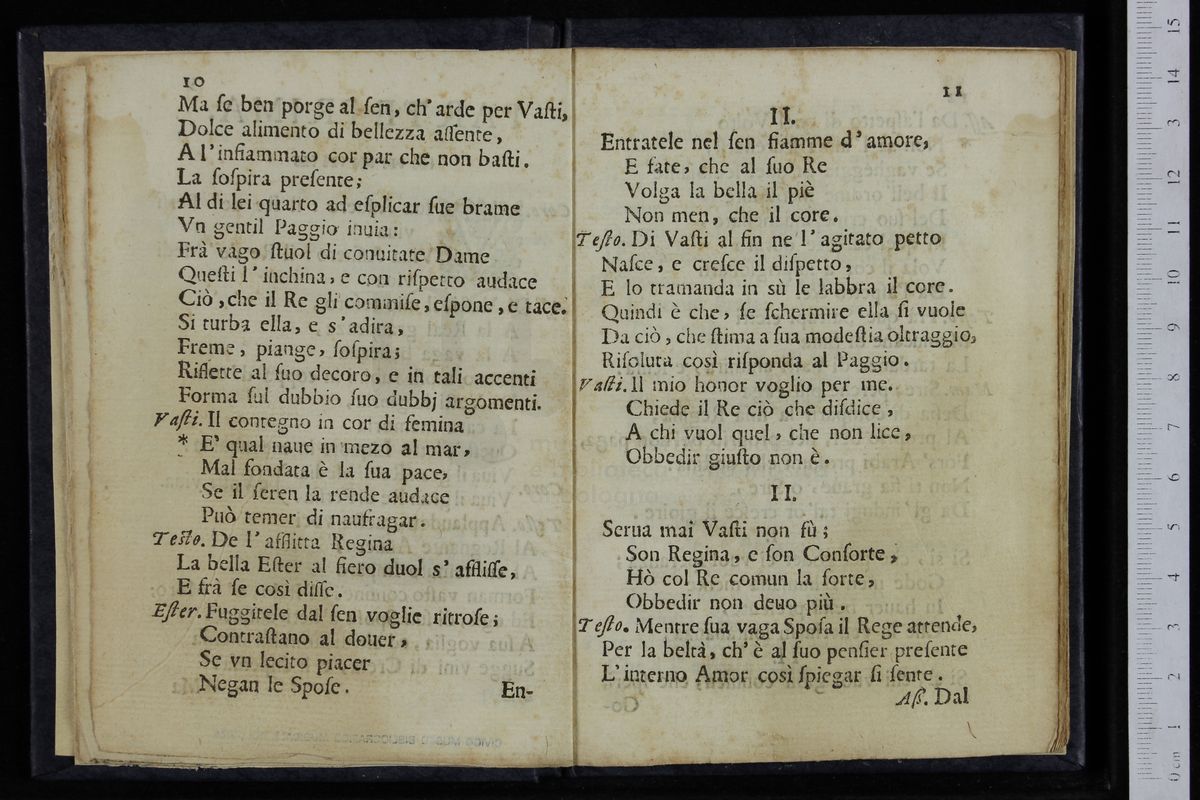 10
Ma ſe ben porge al ſen, ch' arde per Vaſti,
Dolce alimento di bellezza aſſente,
A l' infiammato cor par che non baſti.
La ſoſpira preſente;
Al di lei quarto ad eſplicar ſue brame
Vn gentil Paggio inuia:
Frà vago ſtuol di conuitate Dame
Queſti l' inchina, e con riſpetto audace
Ciò, che il Re gli commiſe, eſpone, e tace.
Si turba ella, e s' adira,
Freme, piange, ſoſpira;
Riflette al ſuo decoro, e in tali accenti
Forma ſul dubbio ſuo dubbj argomenti.
Vaſti. Il contegno in cor di femina
* E' qual naue in mezo al mar,
Mal fondata è la ſua pace,
Se il ſeren la rende audace
Può temer di naufragar.
Teſto. De l' afflitta Regina
La bella Eſter al fiero duol s' affliſſe,
E frà ſe così diſſe.
Eſter. Fuggitele dal ſen voglie ritroſe;
Contraſtano al douer,
Se vn lecito piacer
Negan le Spoſe.
En-
11
II.
Entratele nel ſen fiamme d' amore,
E fate, che al ſuo Re
Volga la bella il piè
Non men, che il core.
Teſto. Di Vaſti al fin ne l' agitato petto
Naſce, e creſce il diſpetto,
E lo tramanda in sù le labbra il core.
Quindi è che, ſe ſchermire ella ſi vuole
Da ciò, che ſtima a ſua modeſtia oltraggio,
Riſoluta così riſponda al Paggio.
Vaſti. Il mio honor voglio per me.
Chiede il Re ciò che diſdice,
A chi vuol quel, che non lice,
Obbedir giuſto non è.
II.
Serua mai Vaſti non fù;
Son Regina, e ſon Conſorte,
Hò col Re comun la ſorte,
Obbedir non deuo più.
Teſto. Mentre ſua vaga Spoſa il Rege attende,
Per la beltà, ch' è al ſuo penſier preſente
L' interno Amor così ſpiegar ſi ſente.
Aſſ. Dal
0 cm 1 2 3 4 5 6 7 8 9 10 11 12 13 14 15